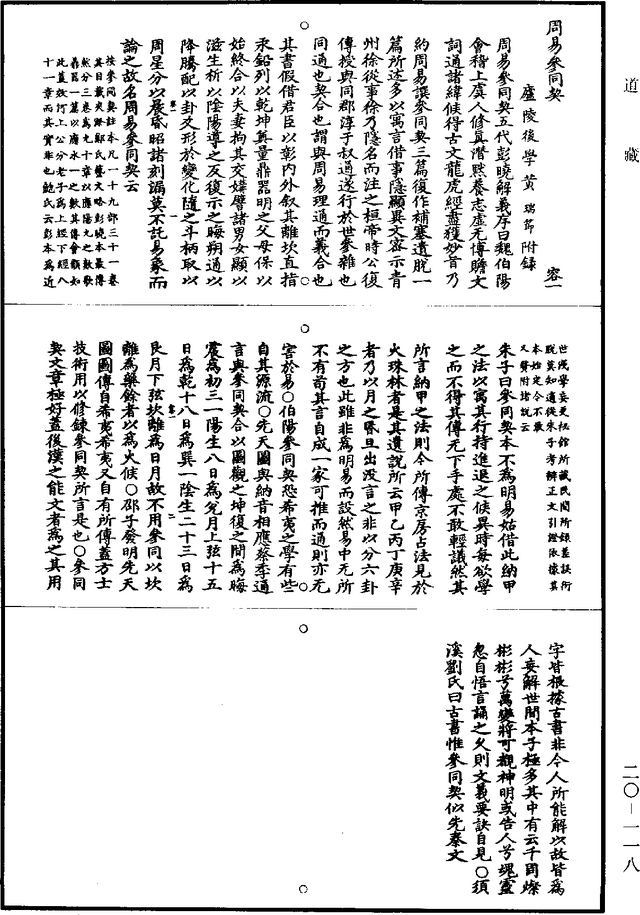 道藏
周易參同契
廬陵後學黃瑞節附錄
容一
周易參同契五代彭曉解義序曰魏伯陽
會稽上虞人修真潛默養志虛无博贍文
詞通諸緯候得古文龍虎經盡獲妙旨乃
約周易譔參同契三篇復作補塞遺脫一
篇所述多以寓言借事隱顯異文密示青
州徐從事徐乃隱名而注之桓帝時公復
傳授與同郡淳于叔通遂行於世參雜也
同通也契合也謂與周易理通而義合也
其書假借君臣以彰內外叙其離坎直指
汞鉛列以乾坤奠量鼎器明之父母保以
始終合以夫妻拘其交媾譬諸男女顯以
滋生析以陰陽導之反復示之晦朔通以
降騰配以卦爻形於變化隨之斗柄取以
周星分以晨昏昭諸刻漏莫不託易象而
論之故名周易參同契云
按參同契註本凡一十九部三十一卷
其目載夾漈鄭氏藝文略彭曉本最傳
然分三卷為九十章以應陽九之數歌
鼎器一篇以應水一之數其傅會類如
此蓋效河上公分老子為上經下經八
十一章而其實非也鮑氏云彭本為近
世淺學妄更祕館所藏民間所錄差誤衍
脫莫知適從朱子考辨正文引證依據其
本始定今不敢
又贅附諸說云
朱子曰參同契本不為明易姑借此納甲
之法以寓其行持進退之候異時每欲學
之而不得其傳无下手處不敢輕議然其
所言納甲之法則今所傳京房占法見於
火珠林者是其遺說所云甲乙丙丁庚辛
者乃以月之昏旦出沒言之非以分六卦
之方也此雖非為明易而設然易中无所
不有苟其言自成一家可推而通則亦无
害於易○伯陽參同契恐希夷之學有些
自其源流○先天圖與納音相應蔡季通
言與參同契合以圖觀之坤復之間為晦
震為初三一陽生八日為兌月上弦十五
日為乾十八日為巽一陰生二十三日為
艮月下弦坎離為日月故不用參同以坎
離為藥餘者以為火候○邵子發明先天
圖圖傳自希夷希夷又自有所傳蓋方士
技術用以修鍊參同契所言是也○參同
契文章極好蓋後漢之能文者為之其用
字皆根據古書非今人所能解以故皆為
人妄解世間本子極多其中有云千周燦
彬彬兮萬變將可覩神明或告人兮魂靈
忽自悟言誦之久則文義要訣自見○須
溪劉氏曰古書惟參同契似先秦文
二○-一一八